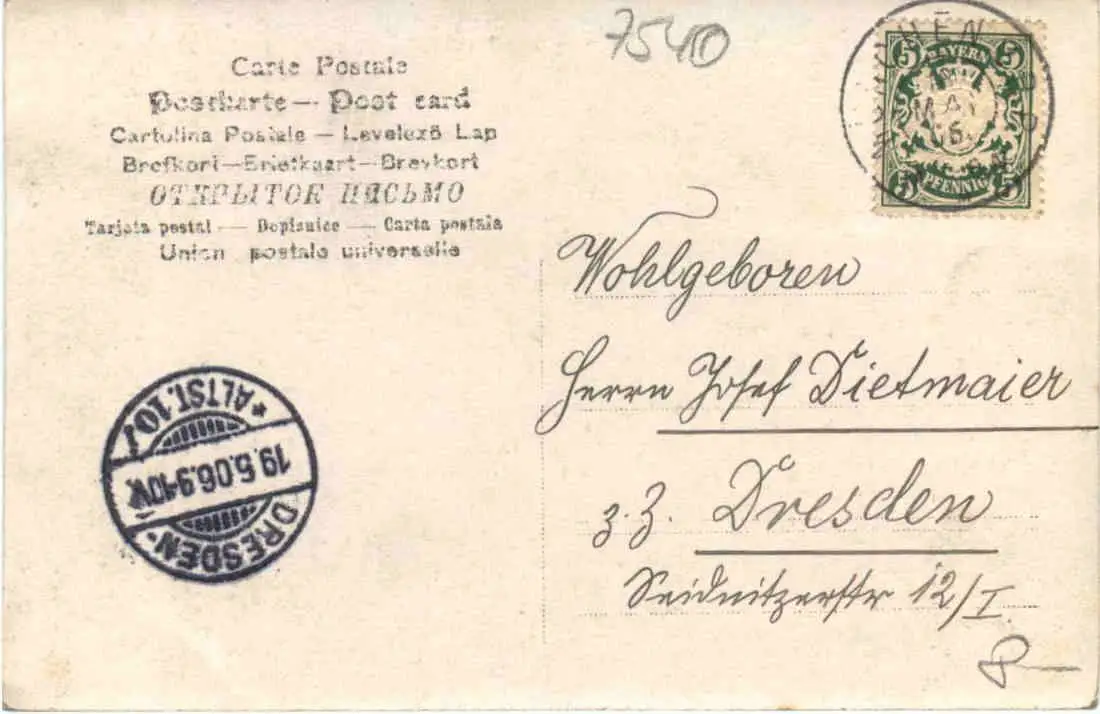 7540
Carte Postale
Postkarte — Post card
Cartolina Postale — Levelező Lap
Brefkort — Briefkaart — Brevkort
ОТКРЫТОЕ ПИСЬМО
Tarjeta postal — Dopisnice — Carta postala
Union postale universelle
5 BAYERN 5
MAI
06
5 PFENNIG 5
MÜNCHEN
Wohlgeboren
Herrn Josef Dietmaier
z. Z. Dresden
Seidnitzerstr 12/I.
DRESDEN-
19.5.06.9-10V.
* ALTST. 10